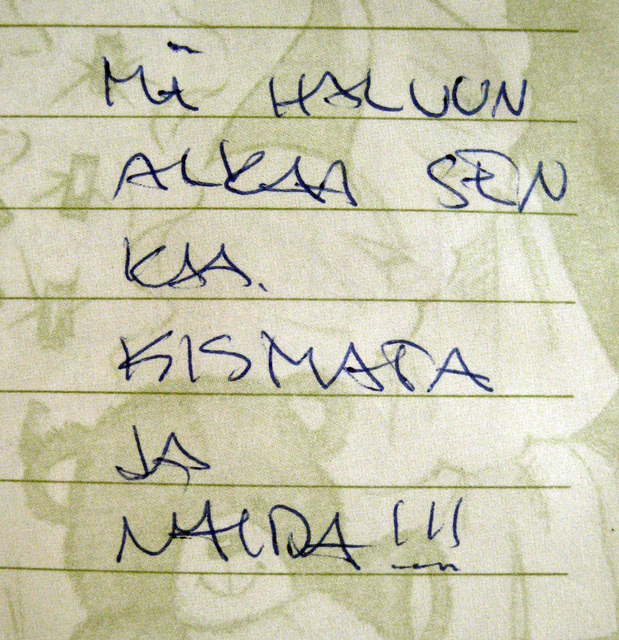 MÄ HALUUN
ALKAA SEN
KAA.
KISMATA
JA
NAIDA!!!